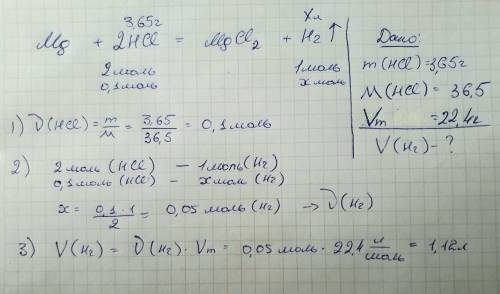 3,65г Xл
Mg + 2HCl = MgCl2 + H2↑
2моль 1моль
0,1моль xмоль
Дано:
m(HCl)=3,65г
M(HCl) = 36,5
Vm =22,4г
V(H2)-?
1) ν(HCl) = m/M = 3,65/36,5 = 0,1моль
2) 2моль (HCl) — 1моль(H2)
0,1моль(HCl) – xмоль(H2)
x = 0,1·1/2 = 0,05моль(H2) → ν(H2)
3) V(H2) = ν(H2)·Vm = 0,05моль·22,4 л/моль = 1,12л